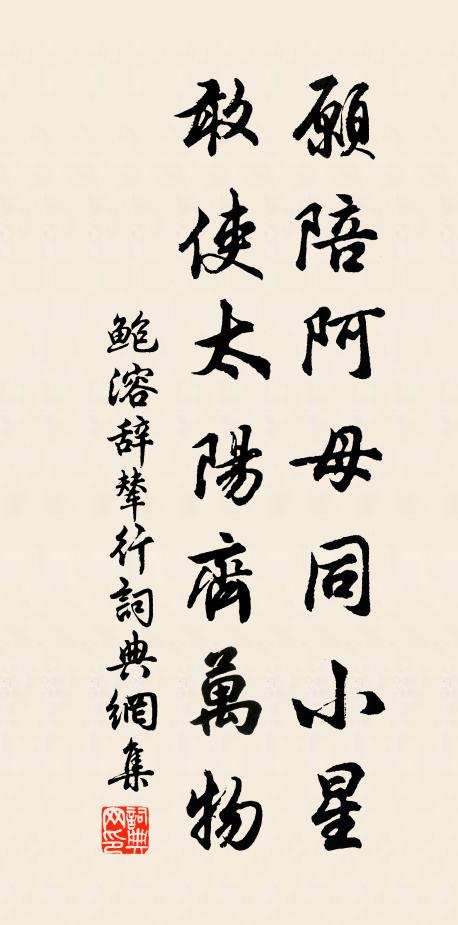 願陪阿母同小星
敢使太陽齊萬物
鮑溶辭輦行詞典網集
詞典網印